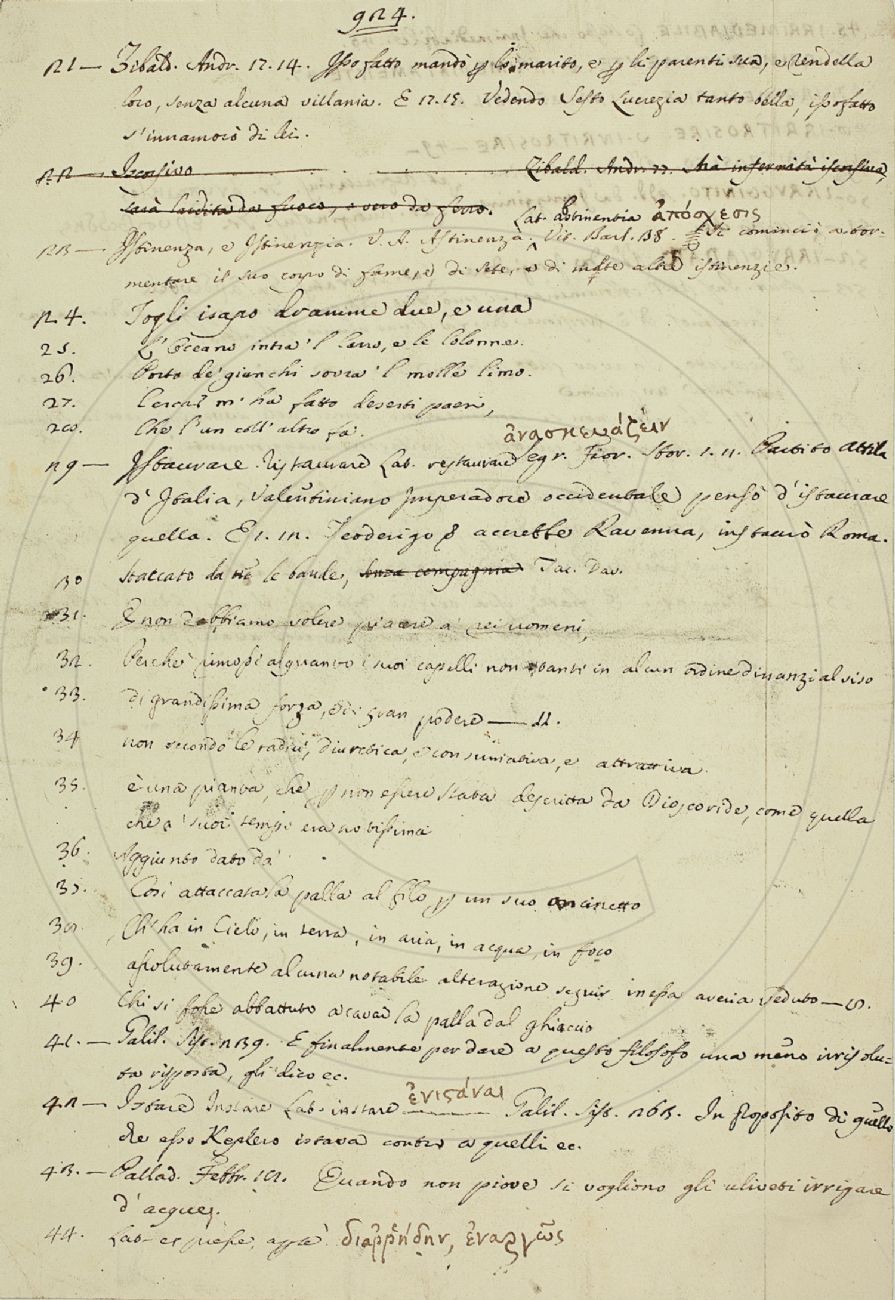 924.
21— Zibald. Andr. 17. 14. Ipso fatto mandò p lo marito, e p li parenti sua, e rendella
loro, senza alcuna villania. E 17. 15. Vedendo Sesto Lucrezia tanto bella, ipsofatto
s'innamorò di lei.
22— Iscensivo Zibald. Andr. 77. infermità iscensiva,
sarà da fuoco, o vero da ferro.
Lat. abstinentia ἀπόσχεσις
23— Istinenza, e Istinenzia. V. A. Astinenza. Vit. Barl. 38. Si cominciò a tor-
mentare il suo corpo di fame, e di sete, e di molte altre istinenzie.
24. Togli isapo dramme due, e una
25. L'Oceano intra 'l Caro, e le Colonne.
26. Porta de' giunchi sovra 'l molle limo.
27. Cercar m' ha fatto deserti paesi,
28. Che l'un coll' altro fa.
ἀνασκευάζειν
29— Istaurare. Ristaurare Lat. restaurare gr. Fior. Stor. 1. 11. Partito Attila
d' Italia, Valentiniano Imperadore occidentale pensò d' istaurare
quella. E 1. 12. Teoderigo accrebbe Ravenna, instaurò Roma.
30 staccato da tre le bande, senza compagnia Tac. Dav.
31. E non dobbiamo volere piacere a' rei uomeni,
32. Perchè rimossi alquanto i suoi capelli non stanti in alcun ordine dinanzi al viso
33. Di grandissima forza, e di gran podere — 11.
34 non secondo le radici, diuretica, e consuntiva, e attrattiva.
35. è una pianta, che p non essere stata descritta da Dioscoride, come quella
che a' suoi tempi era notissima
36. Aggiunto dato da
37. Così attaccata la palla al filo p un suo oncinetto
38. Ch' ha in Cielo, in terra, in aria, in acqua, in foco
39. assolutamente alcuna notabile alterazione seguir in essa avria veduto —
40 Chi si fosse abbattuto a cavar la palla dal ghiaccio
41.— Galil. Sist. 239. E finalmente per dare a questo filosofo una meno irrisolu-
ta risposta, gli dico ec.
ἐνιστάναι
42— Istare Instare Lat. instare Galil. Sist. 263. In proposito di quello
che esso Keplero istava contro a quelli ec.
43.— Pallad. Febbr. 18. Quando non piove si vogliono gli uliveti irrigare
d' acque.
44. Lat. expresse, διαῤῥήδην, ἐναργῶς